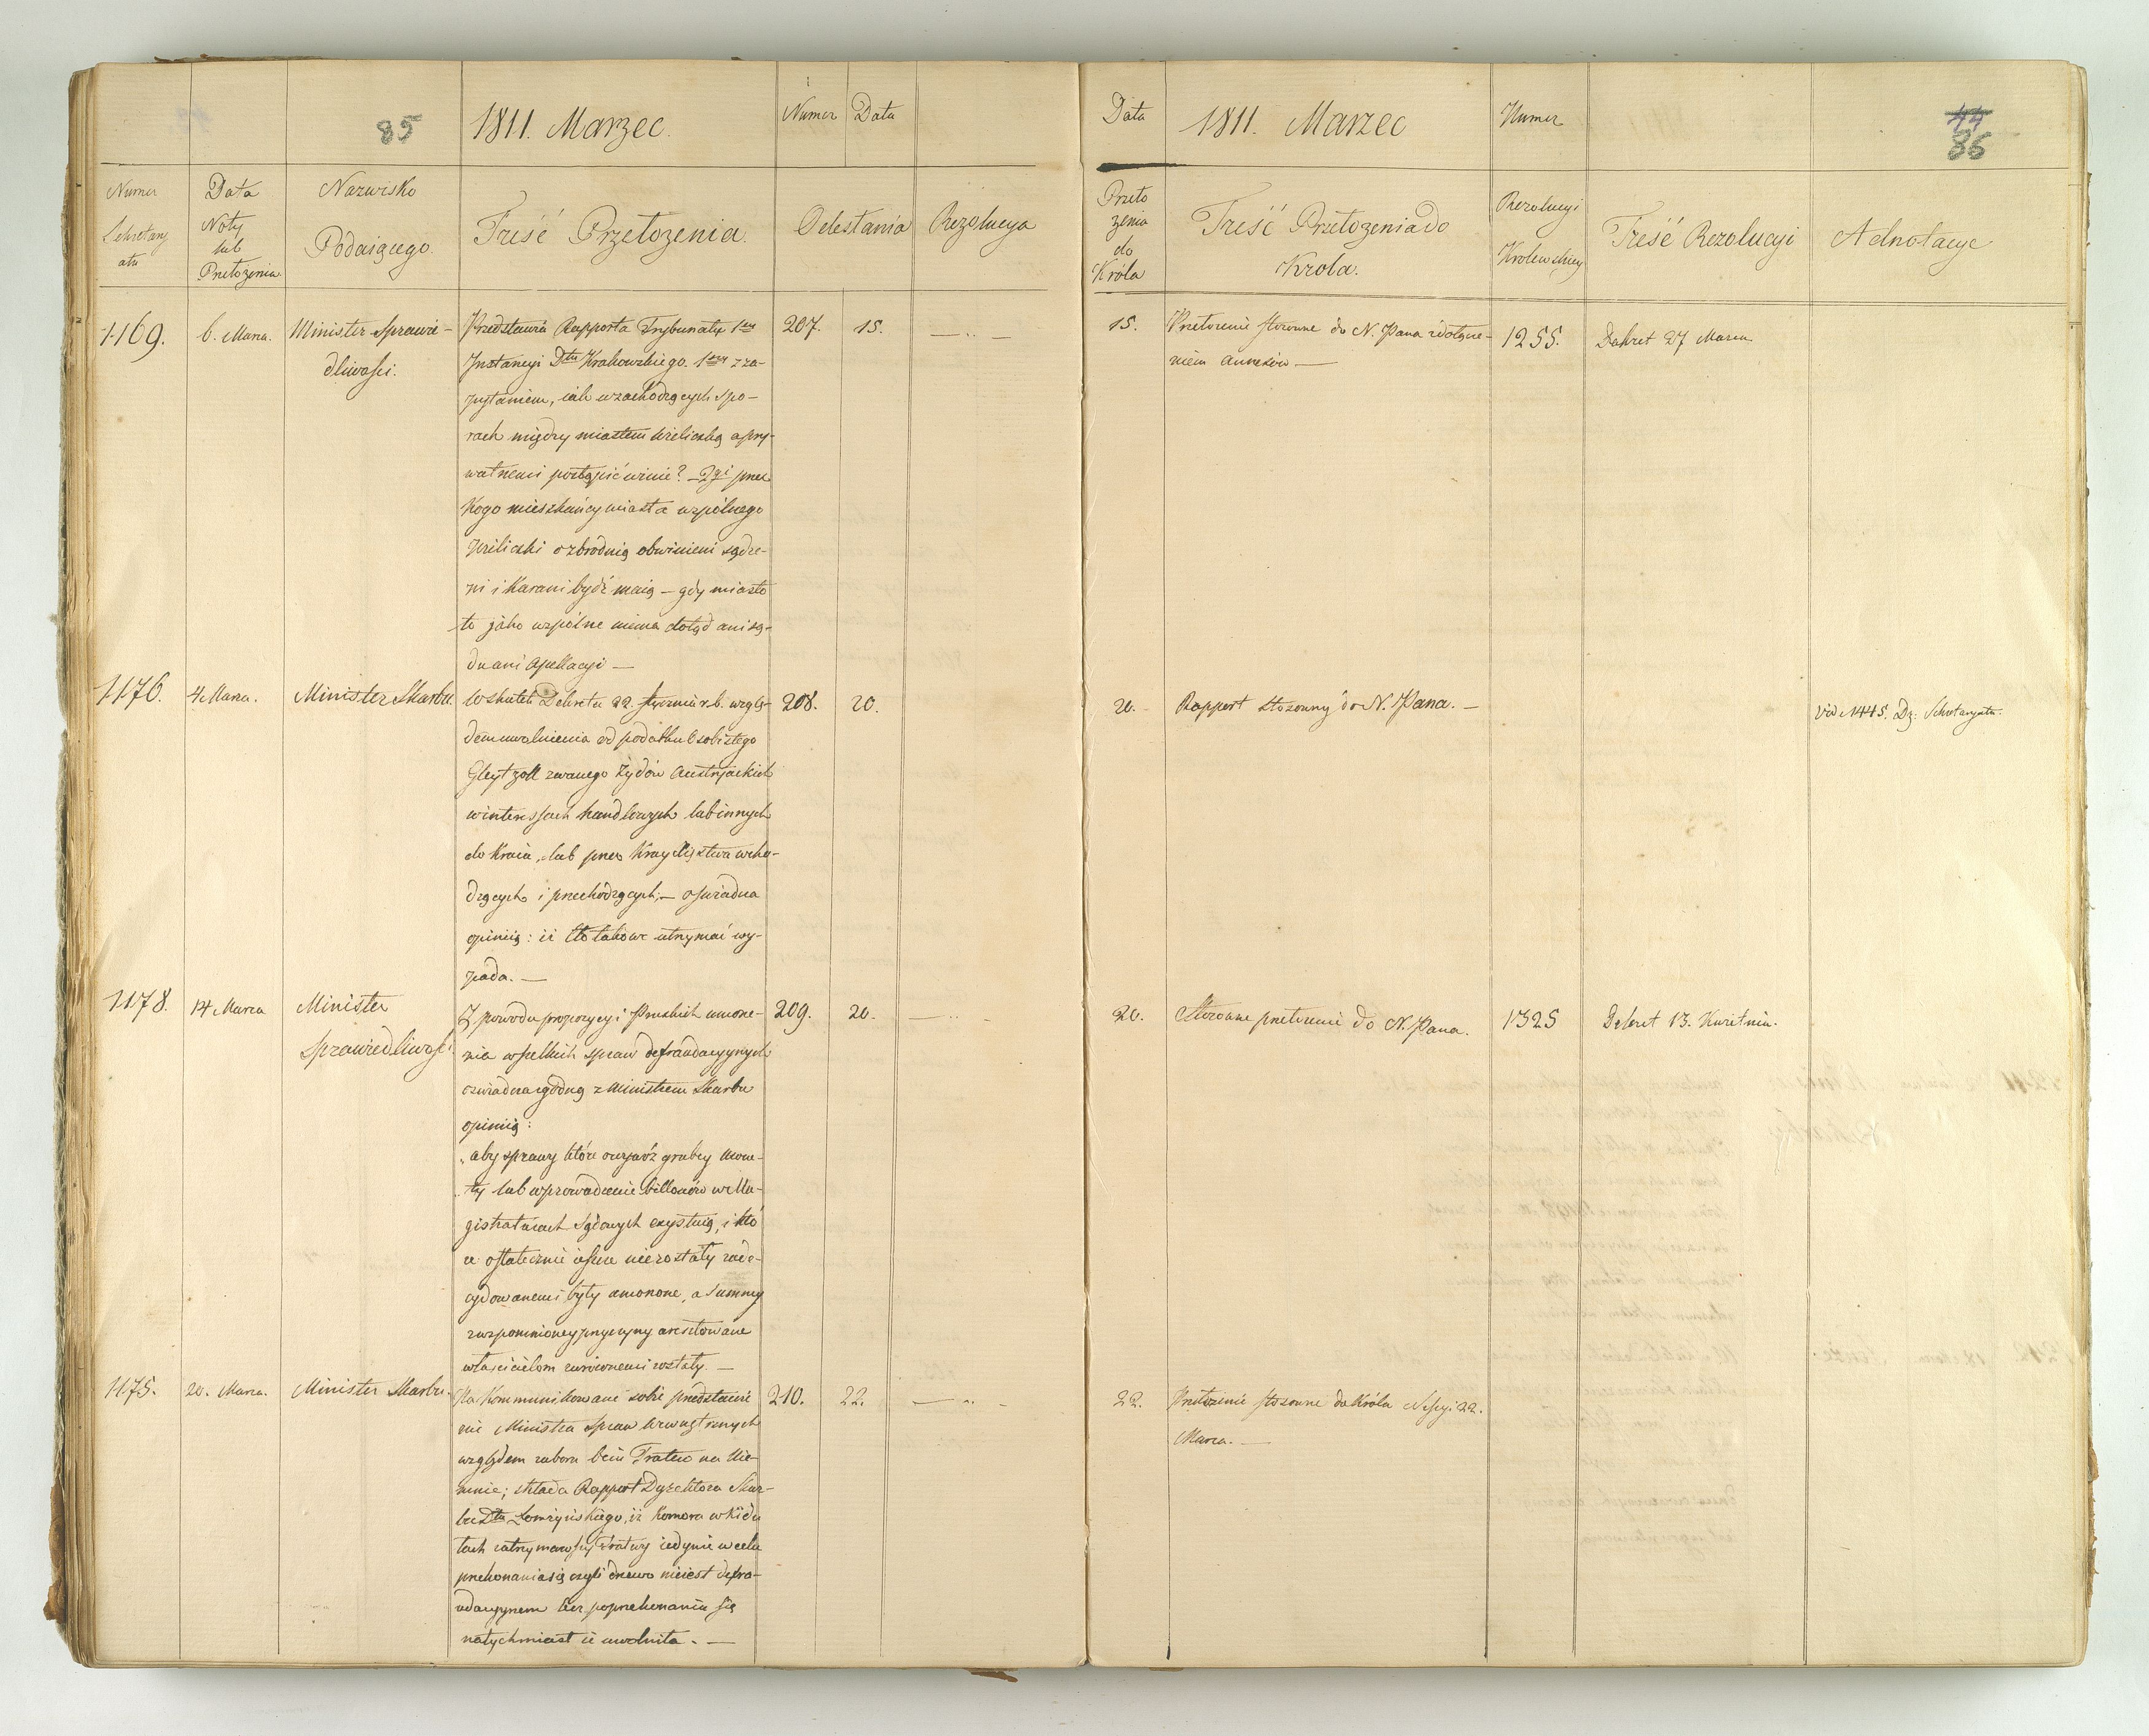 85
1811. Marzec.
Numer
Data
Numer
Sekretary
atu
Data
Noty
lub
Przełożenia
Nazwisko
Podaiącego.
Treść Przełożenia.
Odesłania
Rezolucya
1169.
6. Marca.
Minister Sprawie-
dliwości.
Przedstawia Rapporta Trybunału 1ey
Instancyi Dttu Krakowskiego. 1szy z za-
pytaniem, iak w zachodzących spo-
rach między miastem Wieliczką a pry-
watnemi postąpić winie? 2gi przez
Kogo mieszkańcy miasta wspólnego
Wieliczki o zbrodnię obwinieni sądze-
ni i karani bydź maią – gdy miasto
to jako wspólne niema dotąd ani są-
du ani Apellacyi —
207.
15.
1176.
4 Marca.
Minister Skarbu.
W skutek Dekretu 22. stycznia r. b. wzglę-
dem uwolnienia od podatku osobistego
Gleytzoll zwanego Żydów Austryackich
w interessach handlowych lub innych
do Kraiu, lub przez Kray Xięstwa wcho-
dzących i przechodzących; – oświadcza
opinią: iż Cło takowe utrzymać wy-
pada. —
208.
20.
1178.
14 Marca
Minister
Sprawiedliwości
Z powodu propozycyi Pruskich umorze-
nia wszelkich spraw defraudacyynych
oświadcza zgodną z Ministrem Skarbu
opinią:
„aby sprawy które o wywóz grubey mone-
„ty lub wprowadzenie billonów w Ma-
gistraturach Sądowych exystuią, i któ
re ostatecznie ieszcze nie zostały zade-
cydowanemi, były umorzone, a Summy
z wspomnioney przyczyny aresztowane
właścicielom zwróconemi zostały. —
209.
20.
1175.
20. Marca.
Minister Skarbu.
Na Kommunikowane sobie przedstawie
nie Ministra Spraw Wewnętrznych
względem zaboru Tratew na Nie-
mnie; składa Rapport Dyrektora Skar-
bu Dttu Łomżyńskiego, iż Komora w Kidu
łach zatrzymawszy Tratwy iedynie w celu
przekonania się czyli drzewo nieiest defra-
udacyynem lecz po przekonaniu się
natychmiast ie uwolniła. —
210.
22.
Data
1811. Marzec
Numer
44
86
Przeło
żenia
do
Króla
Treść Przełożenia do
Krola.
Rezolucyi
Krolewskiey
Treść Rezolucyi
Adnotacye
15.
Przełożenie stosowne do N. Pana z dołącze-
niem annexów —
1255.
Dekret 27 Marca
20.
Rapport stosowny do N. Pana. —
Vid. N 1415. Dz: Sekretaryatu.
20.
Stosowne przełożenie do N. Pana.
1325
Dekret 13. Kwietnia.
22.
Przełożenie stosowne do Króla Sessyi 22.
Marca. —